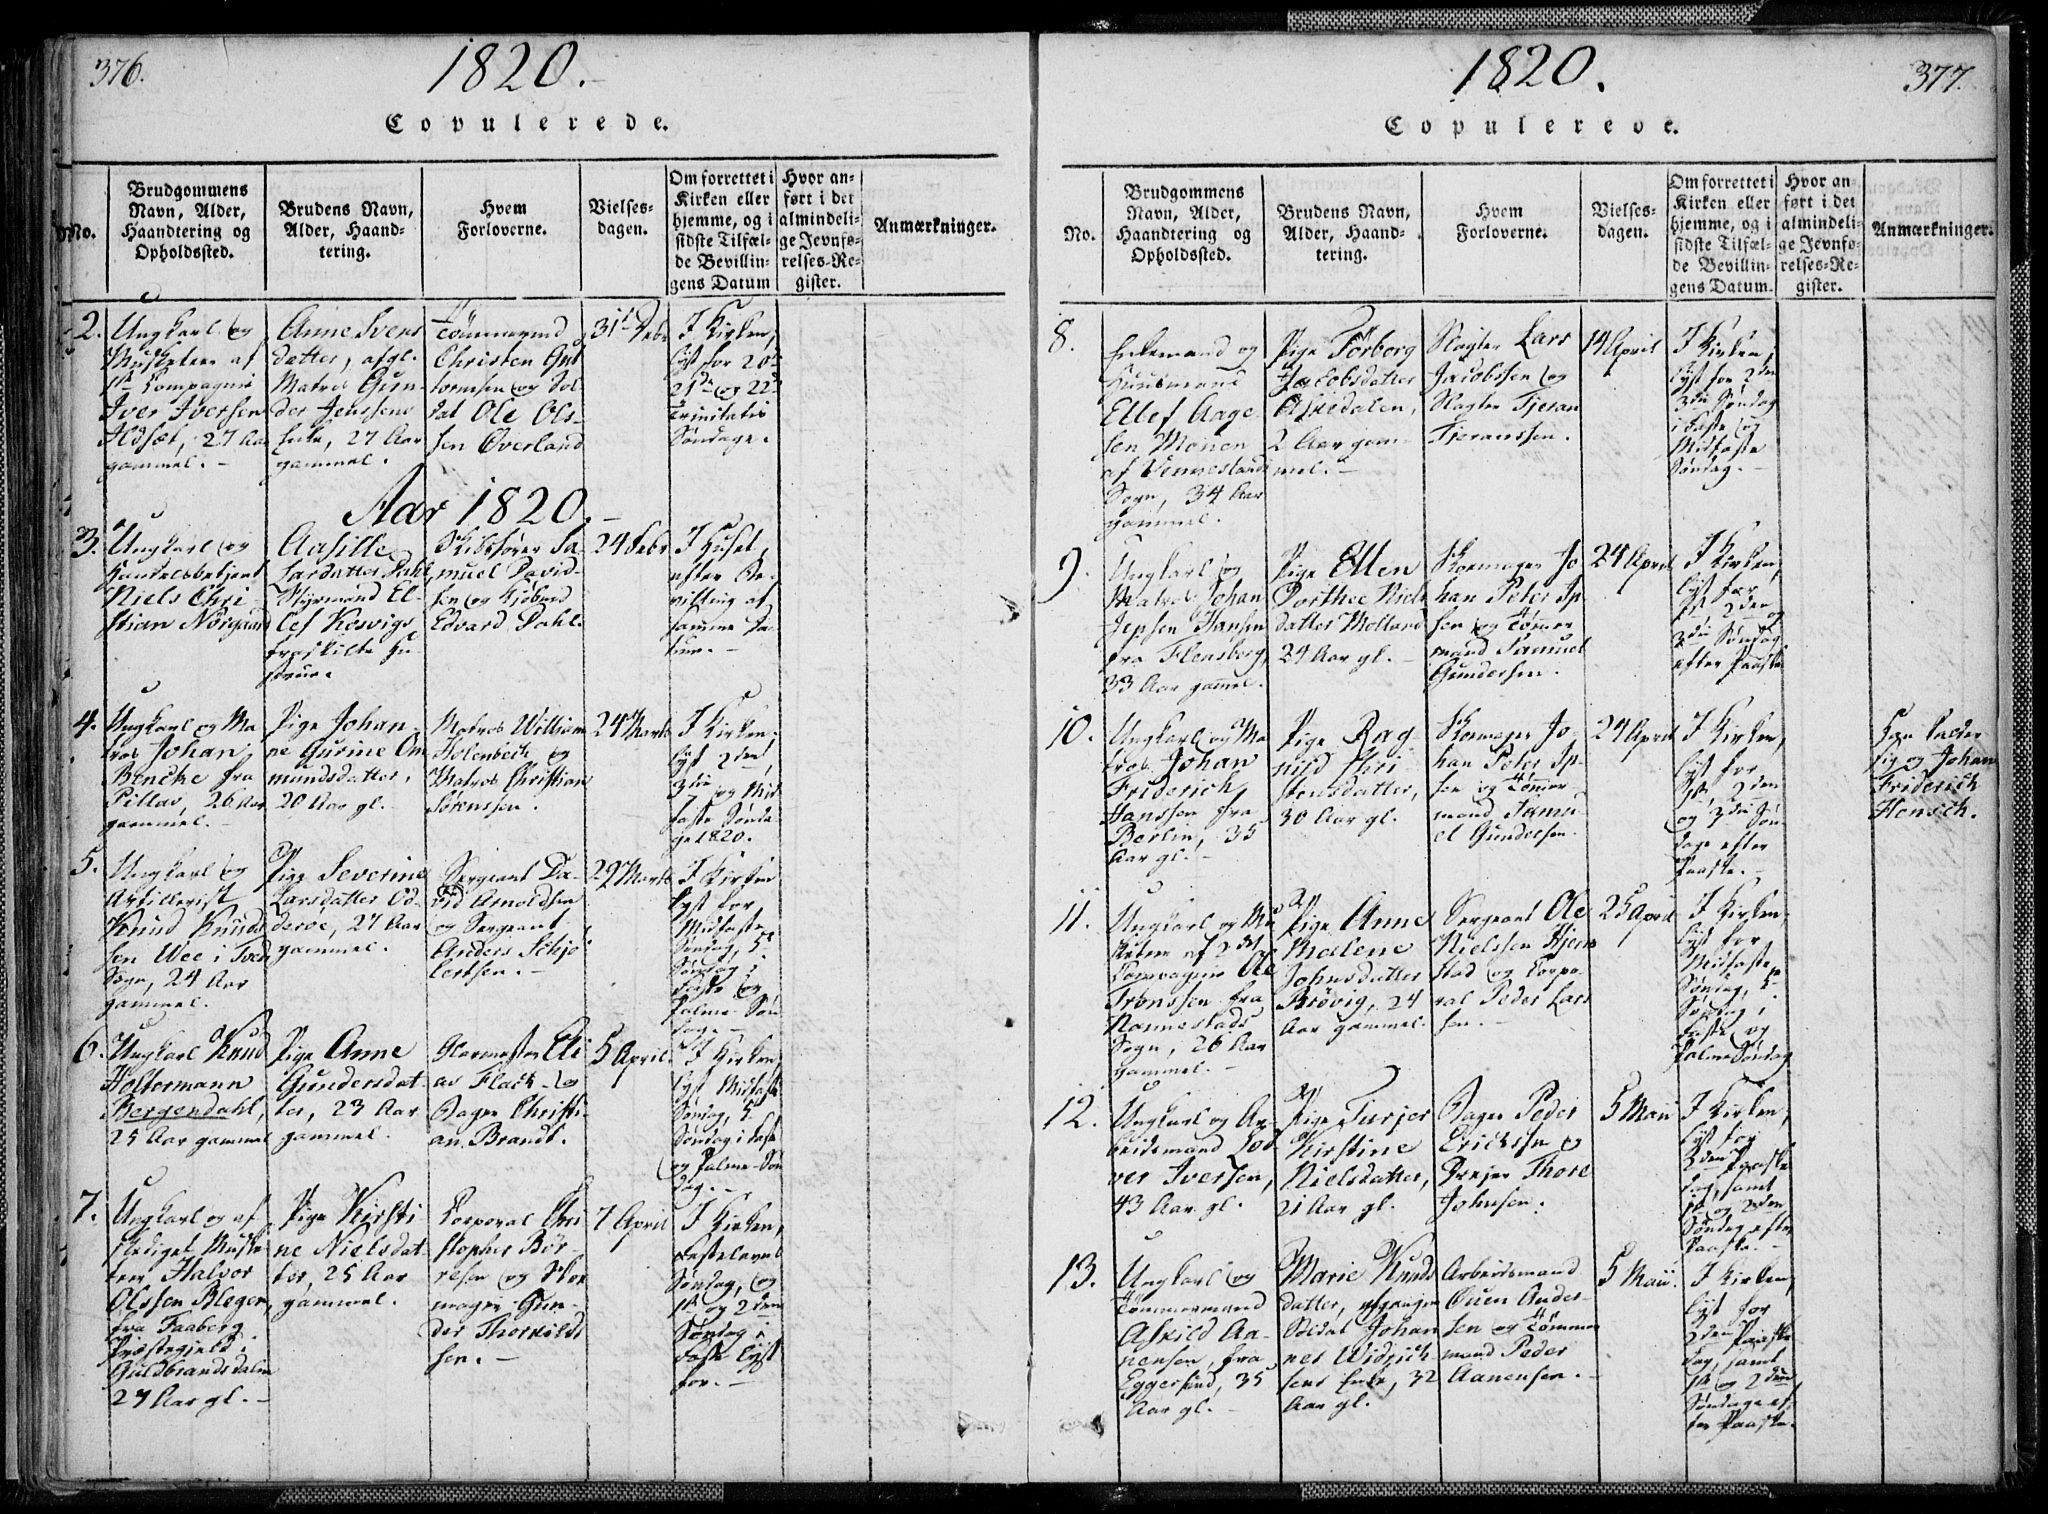 376.
1820.
Copulerede.
No.
Brudgommens
Navn, Alder,
Haandtering og
Opholdssted.
Brudens Navn,
Alder, Haand-
tering.
Hvem
Forloverne.
Vielses-
dagen.
Om forrettet i
Kirken eller
hjemme, og i
sidste Tilfæl-
de Bevillin-
gens Datum
Hvor an-
ført i det
almindeli-
ge Jevnfø-
relses-Re-
gister.
Anmærkninger.
2.
Ungkarl og
Musketeer af
1ste Compagnie
Iver Iversen
27 Aar
gammel.
Anne Svens
datter, afgl.
Matros Gun-
der Jenssens
Enke, 27 Aar
gammel.
Tömmermd
Christen Gut
tormsen og Sol
dat Ole Ols-
sen Överland
I Kirken,
lyst for 20de
21de og 22de
Trinitatis
Søndage.
Aar 1820.
3.
Ungkarl og
Handelsbetjent
Niels Chri-
stian Nörgaard
Aasille
Larsdatter Dahl,
Styrmand El-
lef Kosvigs
fraskilte Hu
strue.
Skibsfører Sa-
muel David-
sen og Kjøbmd
Edvard Dahl.
24 Febr
I Huset,
efter Be-
villing af
samme Da-
tum.
4.
Ungkarl og Ma
tros Johan
Bencke fra
Pillau, 26 Aar
gammel.
Pige Johan-
ne Gurine Om
mundsdatter,
20 Aar gl.
Matros William
Holenbeck og
Matros Christian
Sørenssen.
24 Marts
I Kirken,
lyst 2den,
3die og Mid
faste Sønda
ge 1820.
5.
Ungkarl og
Artillerist
Knud Knuds
sen Wee i Tved
Sogn, 24 Aar
gammel.
Pige Severine
Larsdatter Od-
deröe, 27 Aar
gammel.
Sergeant Da-
vid Arnoldsen
og Sergeant
Anders Schjö
lertsen.
29 Marts
I Kirken
lyst for
Midfaste
Søndag, 5te
Søndag i
Faste og
Palme-Søn
dag.
6.
Ungkarl Knud
Holtermann
Bergendahl,
25 Aar gammel
Pige Anne
Gundersdat-
ter, 23 Aar
gammel.
Glarmester Eli
as Flack og
Bager Christi-
an Brandt.
5 April.
I Kirken
lyst Midfaste
Søndag, 5te
Søndag i Faste
og Palme-Søn
dag.
7.
Ungkarl og af
skediget Muske
teer Halvor
Olssen Bleger,
fra Faaberg
Præstegjeld i
Guldbrandsdalen
27 Aar gl.
Pige Kirsti
ne Nielsdat-
ter, 25 Aar
gammel.
Corporal Chri
stopher Bör-
resen og Skoe
mager Gun-
der Thorkilds
sen.
7 April
I Kirken,
Fastelavns
Søndag, og
1ste og 2den
Søndag i
Faste lyst
for.
377.
1820.
Copulerede.
No.
Brudgommens
Navn, Alder,
Haandtering og
Opholdssted.
Brudens Navn,
Alder, Haand-
tering.
Hvem
Forloverne.
Vielses-
dagen.
Om forrettet i
Kirken eller
hjemme, og i
sidste Tilfæl-
de Bevillin-
gens Datum.
Hvor an-
ført i det
almindeli-
ge Jevnfø-
relses-Re-
gister.
Anmærkninger.
8.
Enkemand og
Huusmand
Ellef Aage
sen Monen
af Vennesland
Sogn, 34 Aar
gammel.
Pige Törborg
Jacobsdatter
2 Aar gam-
mel.
Slagter Lars
Jacobssen og
Slagter Tjeran
Tjeranssen.
14 April
I Kirken,
lyst for 2den
3die Søndag
i Faste og
Midfaste
Søndag.
9.
Ungkarl og
Matros Johan
Jepsen Hansen
fra Flensborg,
33 Aar gammel.
Pige Ellen
Dorthee Niels
datter Molland
24 Aar gl.
Skomager Jo
han Peter Ip-
sen og Tömmer
mand Samuel
Gundersen.
24 April
I Kirken,
lyst for
1ste 2den og
3die Søndag
efter Paaske
10.
Ungkarl og Ma
tros Johan
Friderich
Hanssen fra
Berlin, 35
Aar gl.
Pige Rag-
nild Chri
stensdatter,
30 Aar gl.
Skomager Jo-
han Peter Ip-
sen og Tömmer
mand Samu-
el Gundersen.
24 April
I Kirken,
lyst for
1ste 2den
og 3die Søn
dage efter
Paaske.
Han kalder
sig og Johan
Friderich
Hensich.
11.
Ungkarl og Mu
sketeer af 2det
Compagnie Ole
Tronssen fra
Nannestads
Sogn, 26 Aar
gammel.
Pige Anne
Malene
Johnsdatter
Brövig, 24
Aar gammel.
Sergeant Ole
Nielssen Hjem
stad og Corpo-
ral Peder Lars
sen.
25 April
I Kirken,
lyst for
Midfaste
Søndag, 5te
Søndag i
Faste og
Palme Søndag
12.
Ungkarl og Ar-
beidsmand Lod
ver Iversen,
43 Aar gl.
Pige Turjer
Kirstine
Nielsdatter,
21 Aar gl.
Bager Peder
Ericksen og
Prejer Thore
Johnsen.
5 Maii
I Kirken,
lyst for
2den Paaske
dag, samt
1ste og 2den
Søndag efter
Paaske.
13.
Ungkarl og
Tömmermand
Askild Aa-
nensen, fra
Eggersund, 35
Aar gl.
Marie Knuds
datter, afgangen
Soldat Johan
nes Widrich
sens Enke, 32
Aar gl.
Arbeidsmand
Ouen Ander-
sen og Tömmer
mand Peder
Aanensen.
5 Maii.
I Kirken,
lyst for
2den Paaske
dag, samt
1ste og 2den
Søndage ef-
ter Paaske.